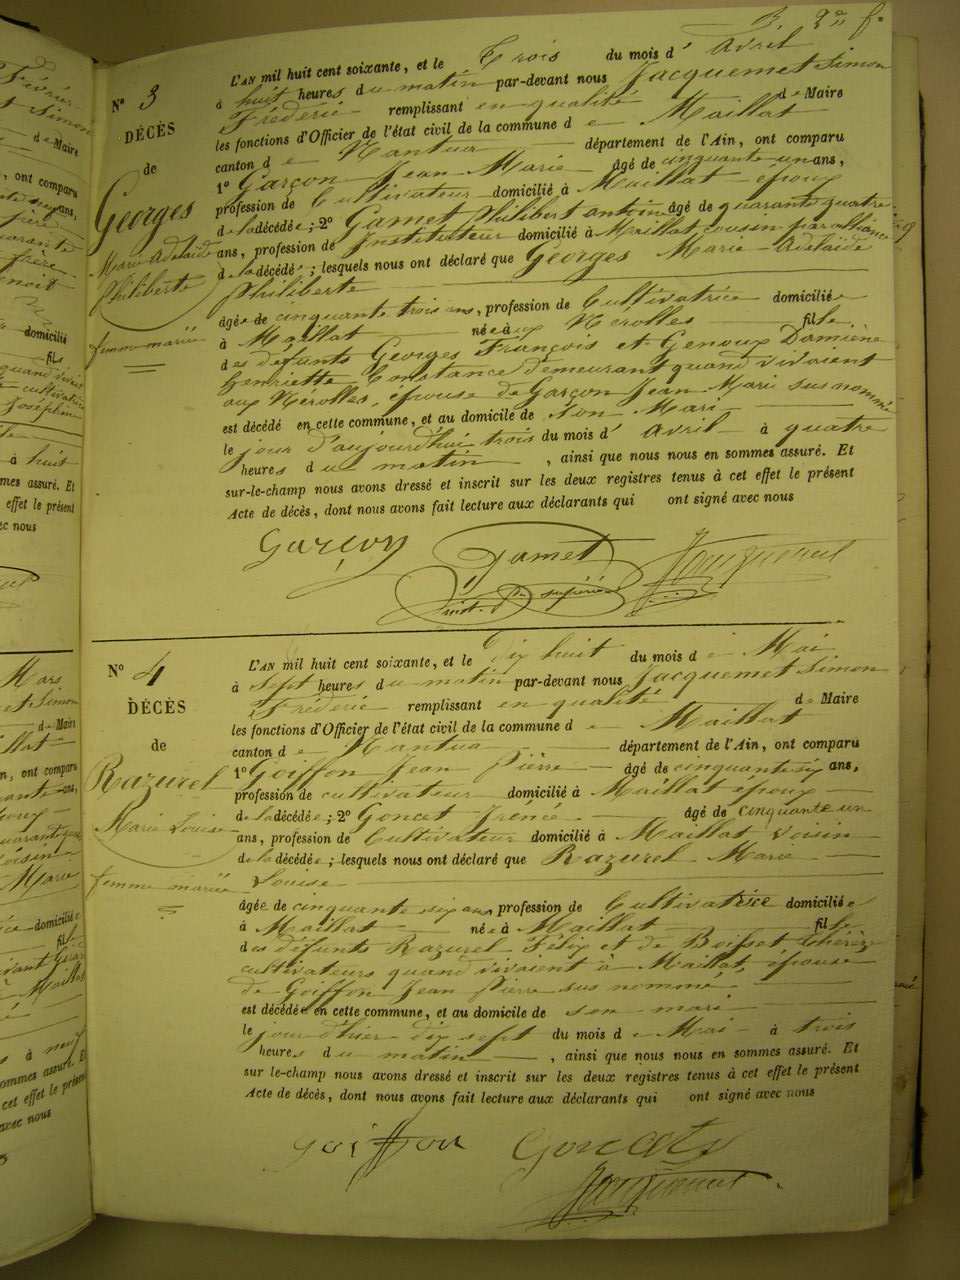 B. 2e f.
N° 3
DÉCÈS
de
Georges
Marie Adelaïde
Philiberte
femme mariée
L'AN mil huit cent soixante, et le Trois du mois d' Avril
à huit heures du matin par-devant nous Jacquemet Simon
Fréderic remplissant en qualité de Maire
les fonctions d'Officier de l'état civil de la commune de Maillat
canton de Nantua département de l'Ain, ont comparu
1° Garçon Jean Marie âgé de cinquante un ans,
profession de Cultivateur domicilié à Maillat époux
de la décédée; 2° Gamet Philibert antoine âgé de quarante quatre
ans, profession de Instituteur domicilié à Maillat cousin par alliance
de la décédée; lesquels nous ont déclaré que Georges Marie Adelaïde
Philiberte
âgée de cinquante trois ans, profession de Cultivatrice domiciliée
à Maillat née aux Nérolles fille
des défunts Georges François et Genoux Damiène
Henriette Constance demeurant quand vivaient
aux Nerolles, épouse de Garçon Jean Marie sus nommé
est décédé en cette commune, et au domicile de son Mari
le jour d'aujourd'hui trois du mois d' Avril à quatre
heures du matin, ainsi que nous nous en sommes assuré. Et
sur-le-champ nous avons dressé et inscrit sur les deux registres tenus à cet effet le présent
Acte de décès, dont nous avons fait lecture aux déclarants qui ont signé avec nous
Garçon Gamet Jacquemet
inst. supérieur
N° 4
DÉCÈS
de
Razurel
Marie Louise
femme mariée
L'AN mil huit cent soixante, et le Dix huit du mois de Mai
à sept heures du matin par-devant nous Jacquemet Simon
Fréderic remplissant en qualité de Maire
les fonctions d'Officier de l'état civil de la commune de Maillat
canton de Nantua département de l'Ain, ont comparu
1° Goiffon Jean Pierre âgé de cinquante six ans,
profession de cultivateur domicilié à Maillat époux
de la décédée; 2° Goncet Irénée âgé de Cinquante un
ans, profession de Cultivateur domicilié à Maillat voisin
de la décédée; lesquels nous ont déclaré que Razurel Marie
Louise
âgée de cinquante six ans, profession de Cultivatrice domiciliée
à Maillat née à Maillat fille
des défunts Razurel Félix et de Boisset thérèze
cultivateurs quand vivaient à Maillat, épouse
de Goiffon Jean Pierre sus nommé
est décédée en cette commune, et au domicile de son mari
le jour d'hier dix sept du mois de Mai à trois
heures du matin, ainsi que nous nous en sommes assuré. Et
sur le-champ nous avons dressé et inscrit sur les deux registres tenus à cet effet le présent
Acte de décès, dont nous avons fait lecture aux déclarants qui ont signé avec nous
goiffon Goncet
Jacquemet